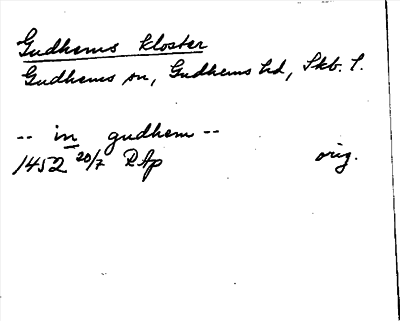 Gudhems kloster
Gudhems sn, Gudhems hd, Skb. l.
-- in gudhem --
1452 20/7 RAp orig.